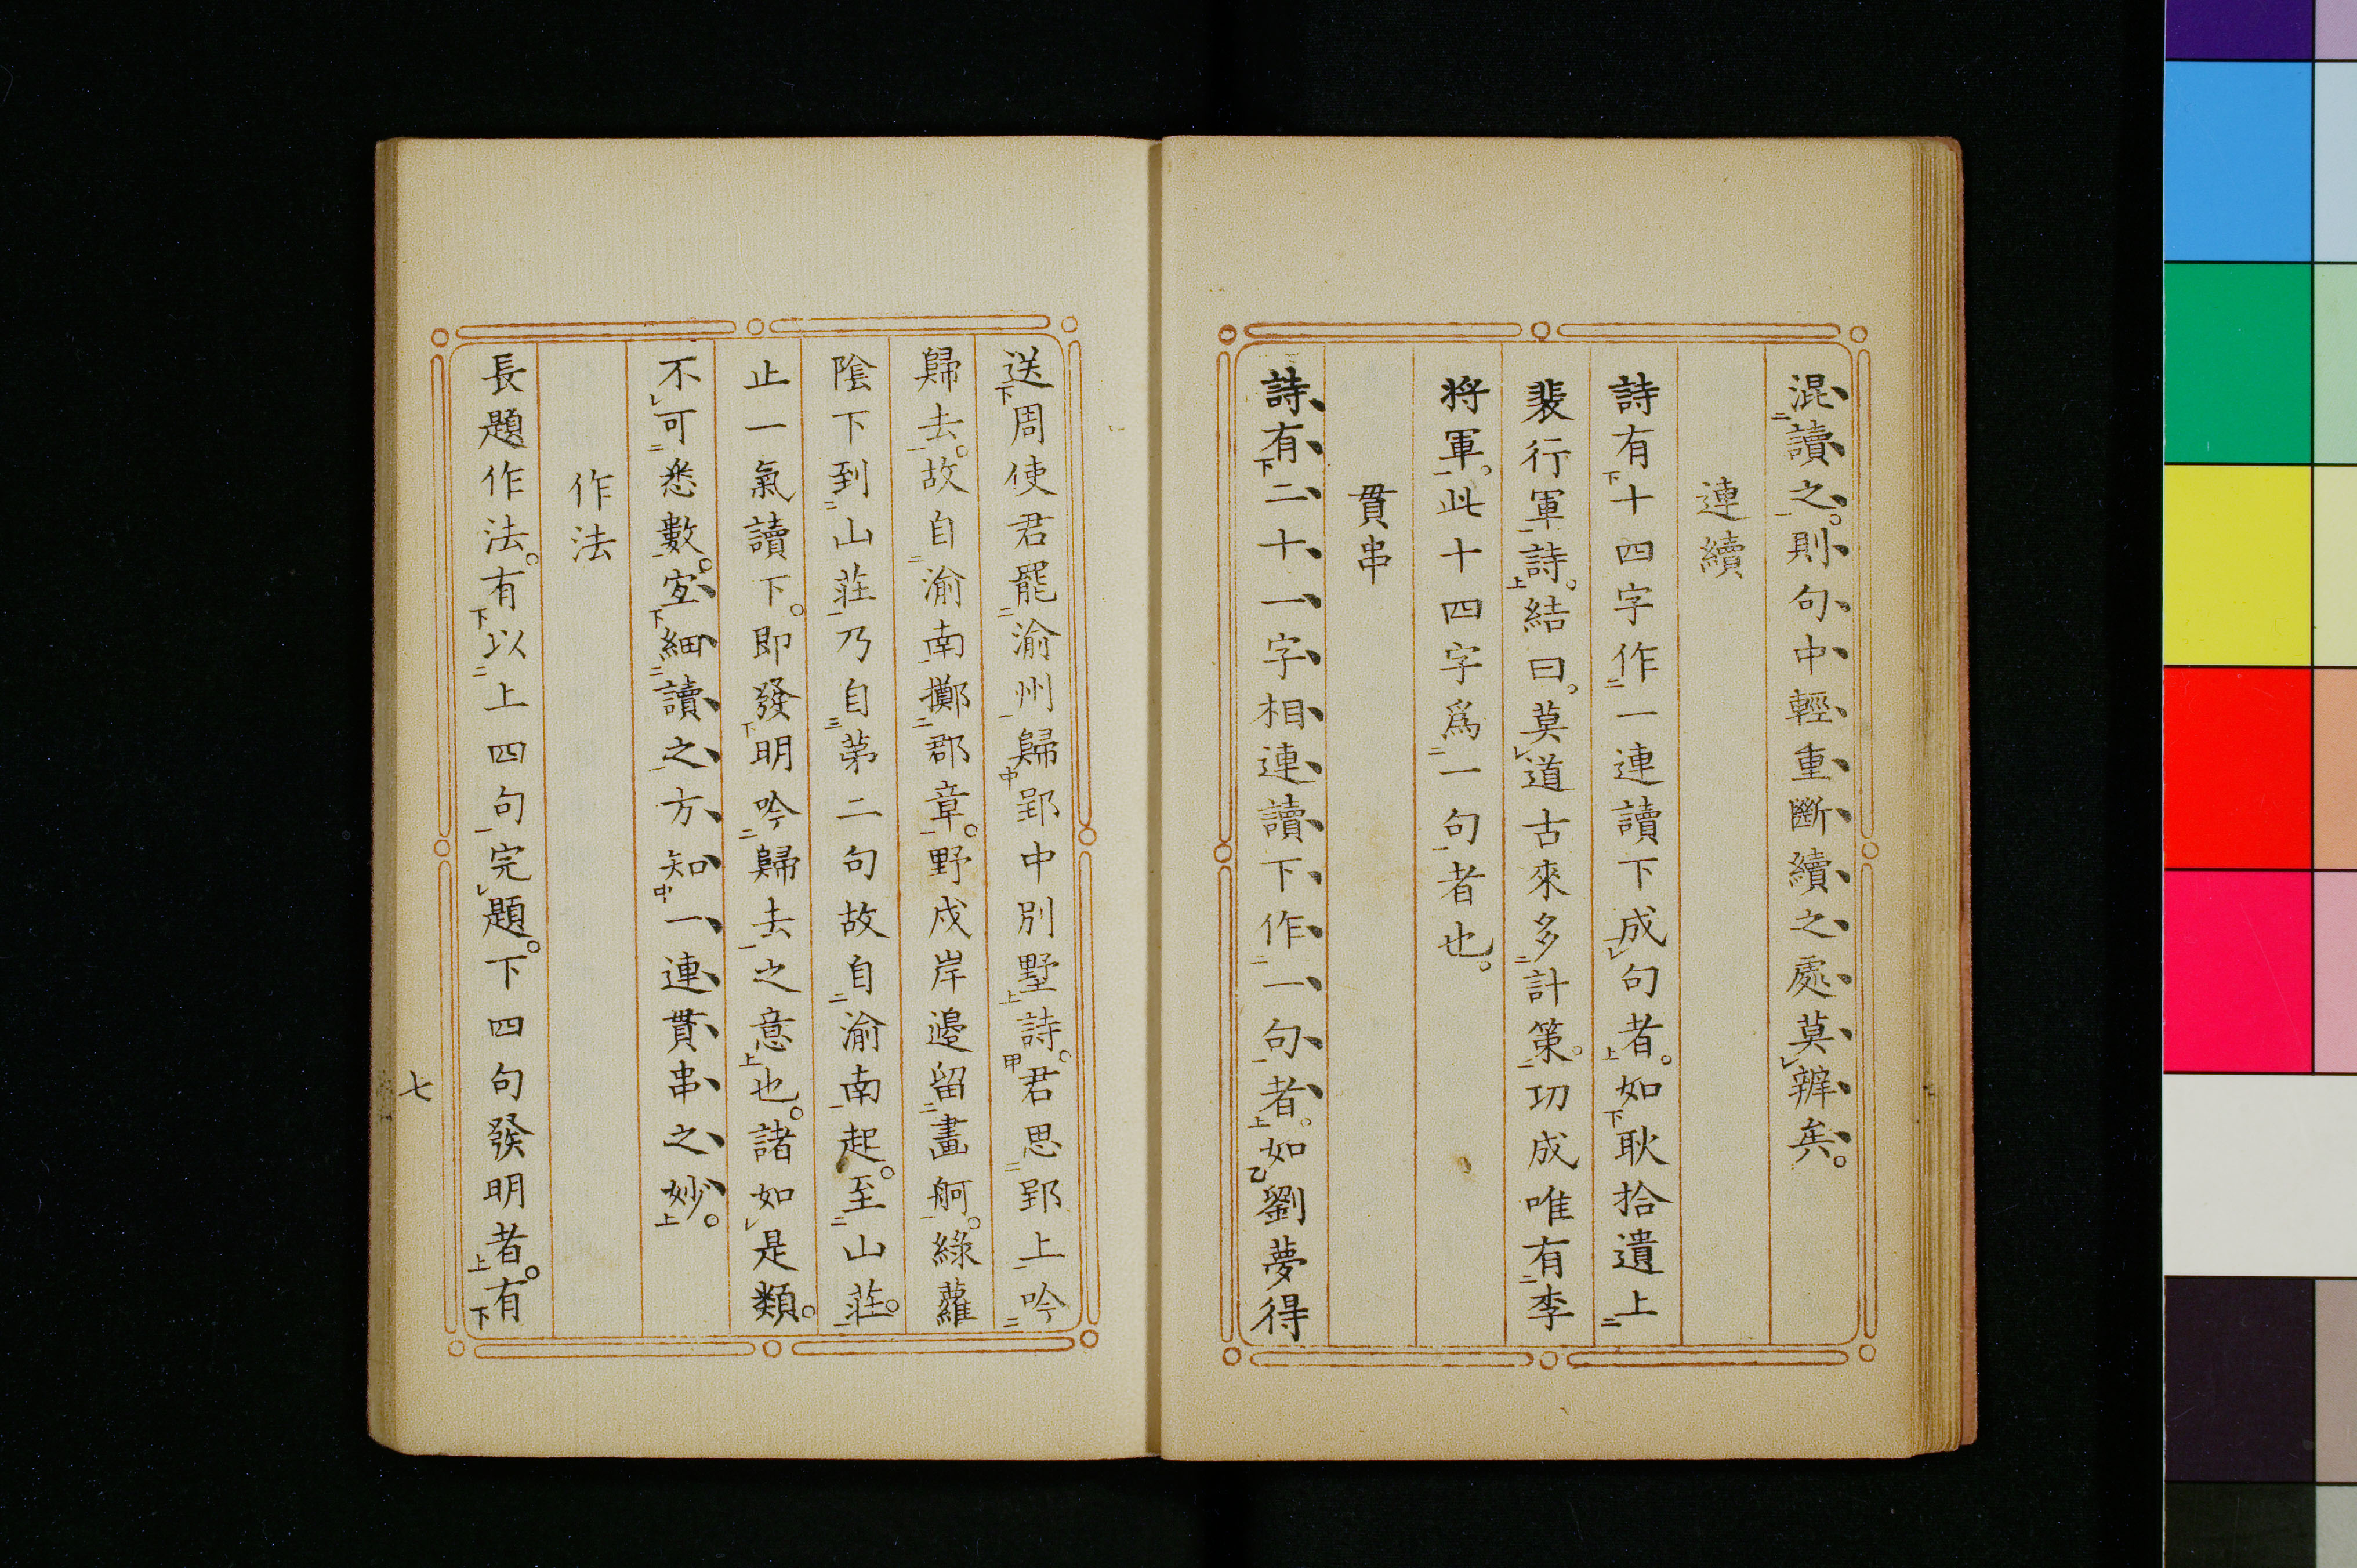 混讀之。則句中輕重斷續之處莫辨矣。
連續
詩有十四字作一連讀下成句者。如耿拾遺上
裴行軍詩。結曰。莫道古來多計策。功成唯有李
将軍。此十四字爲一句者也。
貫串
詩有二十一字相連讀下作一句者。如劉夢得
送周使君罷渝州歸郢中別墅詩。君思郢上吟
歸去。故自渝南擲郡章。野戍岸邊留畫舸。綠蘿
陰下到山莊乃自第二句故自渝南起。至山莊。
止一氣讀下。即發明吟歸去之意也。諸如是類。
不可悉數。宜細讀之方知一連貫串之妙。
作法
長題作法。有以上四句完題。下四句發明者。有
七